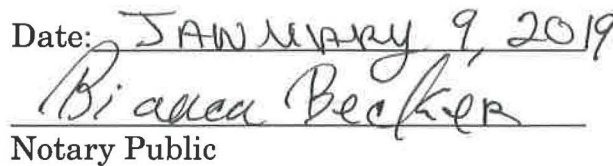 Date: JANUARY 9, 2019
Bianca Becker
Notary Public